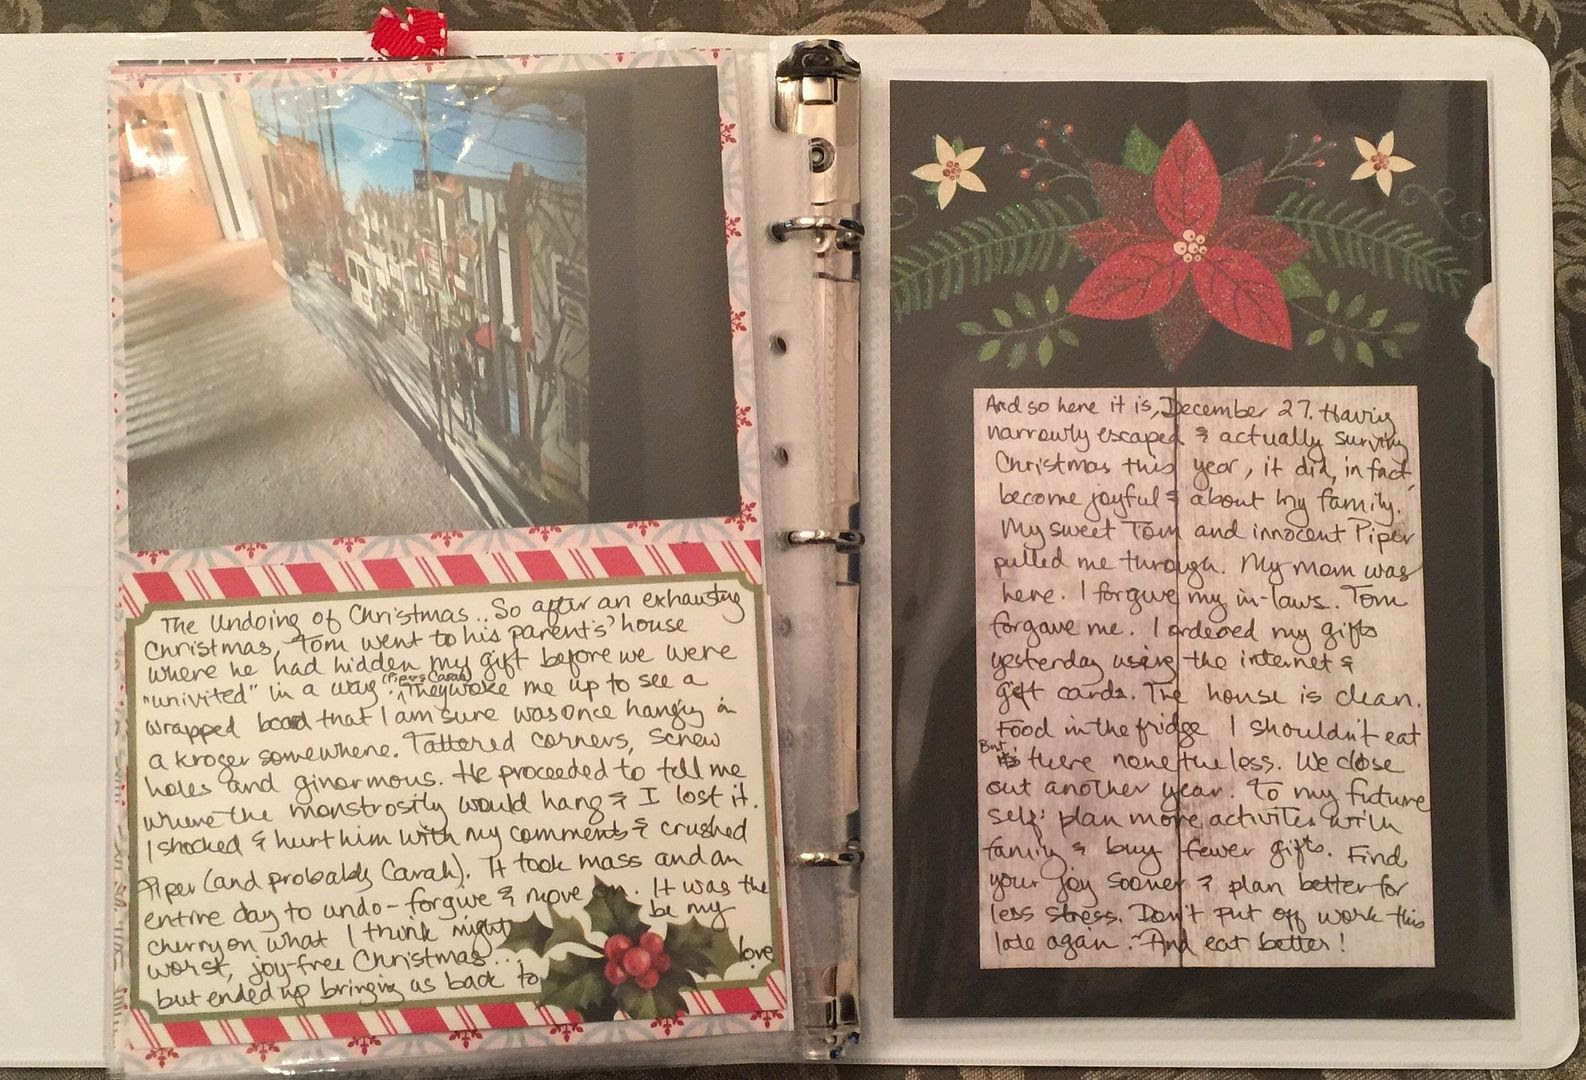 The Undoing of Christmas... So after an exhausting
Christmas, Tom went to his parent's' house
where he had hidden my gift before we were
"univited" in a way. (Piper & Carah) They woke me up to see a
wrapped board that I am sure was once hanging in
a kroger somewhere. Tattered corners, screw
holes and ginormous. He proceeded to tell me
where the monstrosity would hang & I lost it.
I shocked & hurt him with my comments & crushed
Piper (and probably Carah). It took mass and an
entire day to undo - forgive & move on. It was the
cherry on what I think might be my
worst, joy-free Christmas...
but ended up bringing us back to love
And so here it is, December 27. Having
narrowly escaped & actually surviving
Christmas this year, it did, in fact,
become joyful & about my family.
My sweet Tom and innocent Piper
pulled me through. My mom was
here. I forgive my in-laws. Tom
forgave me. I ordered my gifts
yesterday using the internet &
gift cards. The house is clean.
Food in the fridge I shouldn't eat
But is there nonetheless. We close
out another year. To my future
self: plan more activites with
family & buy fewer gifts. Find
your joy sooner & plan better for
less stress. Don't put off work this
late again. And eat better!